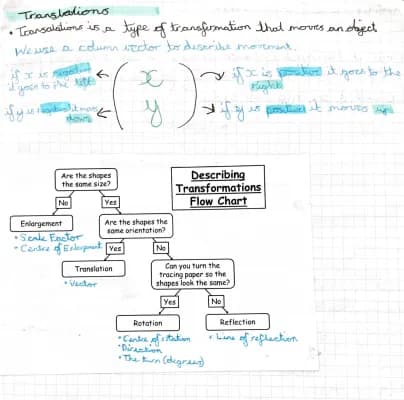 Translations
• Translations is a type of transformation that moves an object
We use a column vector to describe movement.
if x is negative it goes to the left
x
if x is positive it goes to the right
if y is negative it moves down
y
if y is positive it moves up
Describing
Transformations
Flow Chart
Are the shapes
the same size?
No
Yes
Enlargement
• Scale Factor
• Centre of Enlargement
Are the shapes the
same orientation?
Yes
No
Translation
• Vector
Can you turn the
tracing paper so the
shapes look the same?
Yes
No
Rotation
• Centre of rotation
• Direction
• The turn (degrees)
Reflection
• Line of reflection